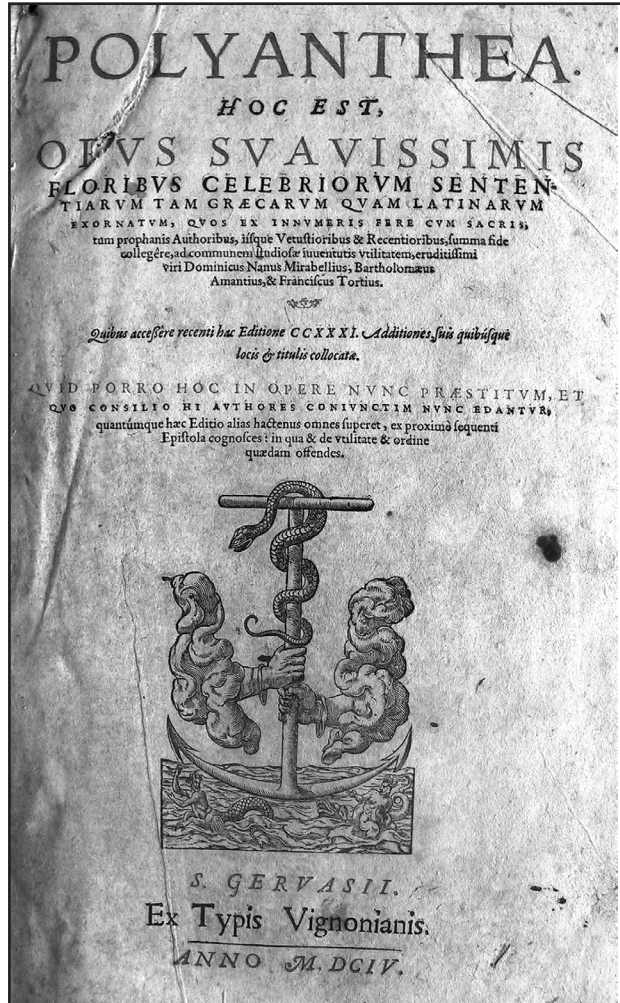 POLYANTHEA.
HOC EST,
OPVS SVAVISSIMIS
FLORIBVS CELEBRIORVM SENTEN-
TIARVM TAM GRÆCARVM QVAM LATINARVM
EXORNATVM, QVOS EX INNVMERIS FERE CVM SACRIS,
tum prophanis Authoribus, iisque Vetustioribus & Recentioribus, summa fide
collegêre, ad communem studiosæ iuuentutis vtilitatem, eruditissimi
viri Dominicus Nanus Mirabellius, Bartholomæus
Amantius, & Franciscus Tortius.
Quibus acceßêre recenti hac Editione CCXXXI. Additiones, suis quibúsque
locis & titulis collocatæ.
QVID PORRO HOC IN OPERE NVNC PRÆSTITVM, ET
QVO CONSILIO HI AVTHORES CONIVNCTIM NVNC EDANTVR,
quantúmque hæc Editio alias hactenus omnes superet, ex proximò sequenti
Epistola cognosces: in qua & de vtilitate & ordine
quædam offendes.
S. GERVASII.
Ex Typis Vignonianis.
ANNO M. DCIV.